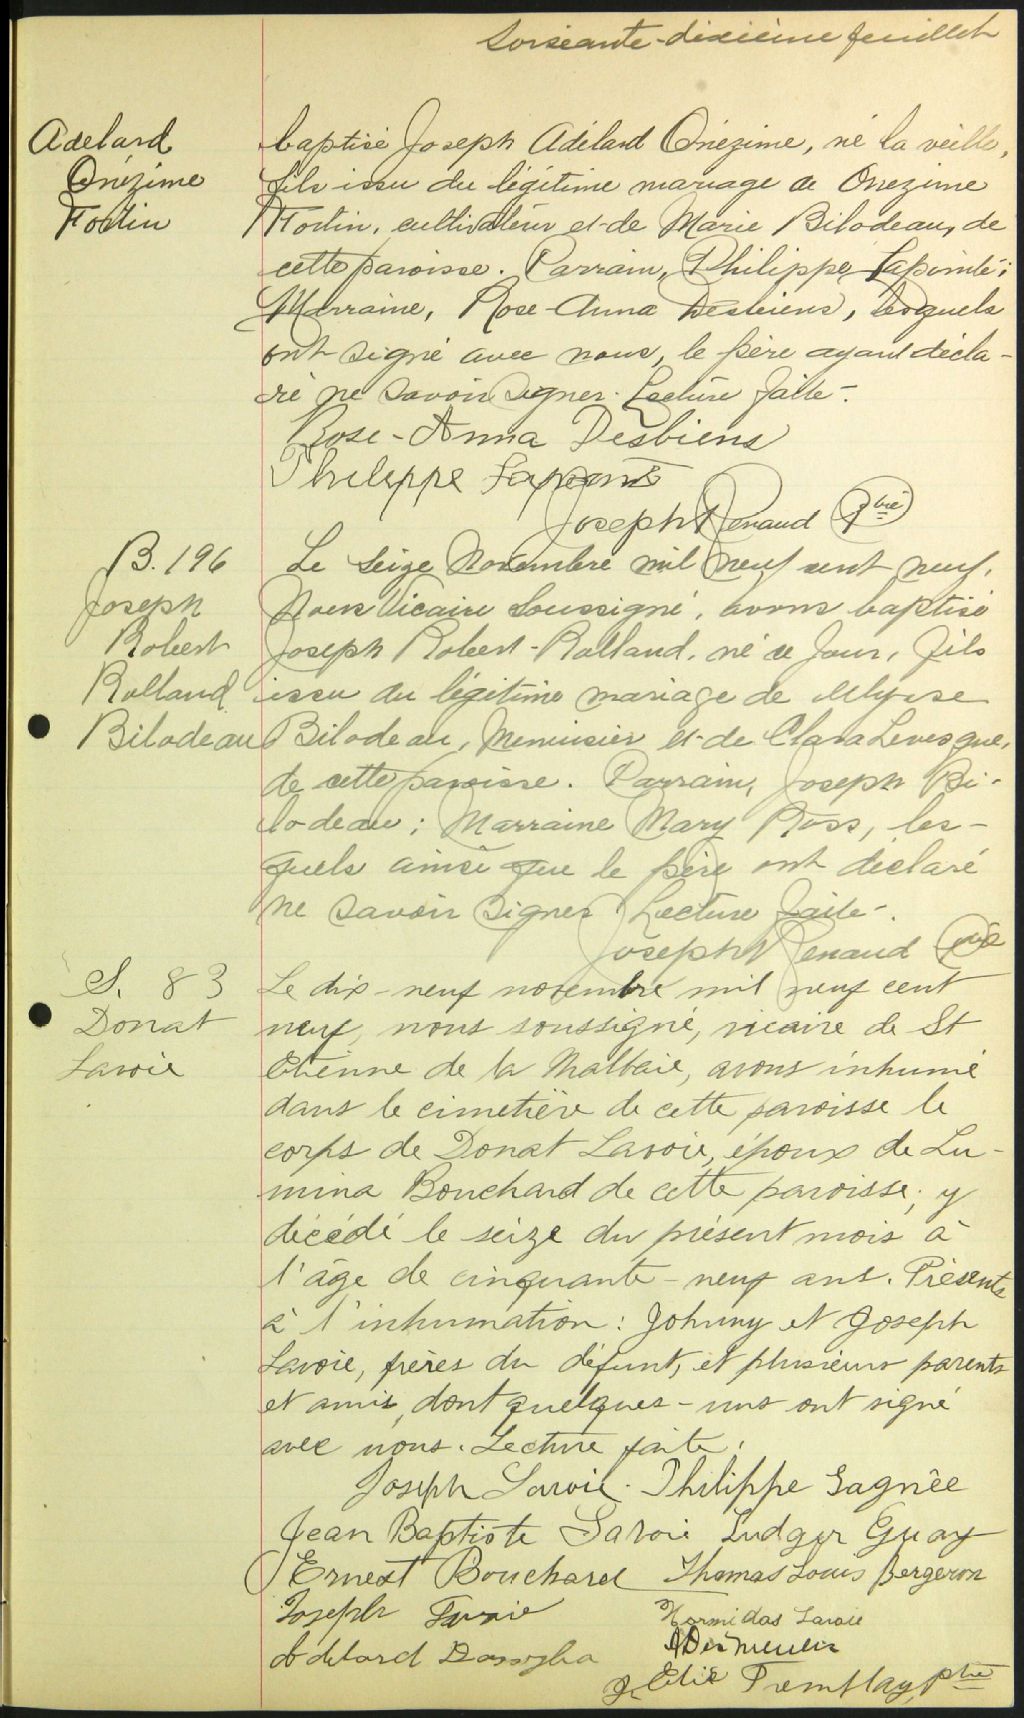 Soixante-dixième feuillet
Adelard
Onézime
Fortin
baptisé Joseph Adélard Onézime, né la veille,
fils issu du légitime mariage de Onezime
Fortin, cultivateur et de Marie Bilodeau, de
cette paroisse. Parrain, Philippe Lapointe;
Marraine, Rose-Anna Desbiens, lesquels
ont signé avec nous, le père ayant décla-
ré ne savoir signer. Lecture faite.
Rose-Anna Desbiens
Philippe Lapointe
Joseph Renaud Ptre
B. 196
Joseph
Robert
Rolland
Bilodeau
Le seize Novembre mil neuf cent neuf,
Nous Vicaire Soussigné, avons baptisé
Joseph Robert-Rolland, né ce jour, fils
issu du légitime mariage de Ulysse
Bilodeau, Menuisier et de Clara Levesque,
de cette paroisse. Parrain, Joseph Bi-
lodeau; Marraine Mary Ross, les-
quels ainsi que le père ont déclaré
ne savoir signer Lecture faite.
Joseph Renaud ptre
S. 83
Donat
Lavoie
Le dix-neuf novembre mil neuf cent
neuf, nous soussigné, vicaire de St
Etienne de la Malbaie, avons inhumé
dans le cimetière de cette paroisse le
corps de Donat Lavoie, époux de Lu-
mina Bouchard de cette paroisse, y
décédé le seize du présent mois à
l'âge de cinquante-neuf ans. Présents
à l'inhumation: Johnny et Joseph
Lavoie, frères du défunt, et plusieurs parents
et amis, dont quelques-uns ont signé
avec nous. Lecture faite.
Joseph Lavoie. Philippe Gagnée
Jean Baptiste Lavoie Ludger Guay
Ernest Bouchard Thomas Louis Bergeron
Joseph Lavoie Hormidas Lavoie
Adelard
J. Elie Tremblay, ptre